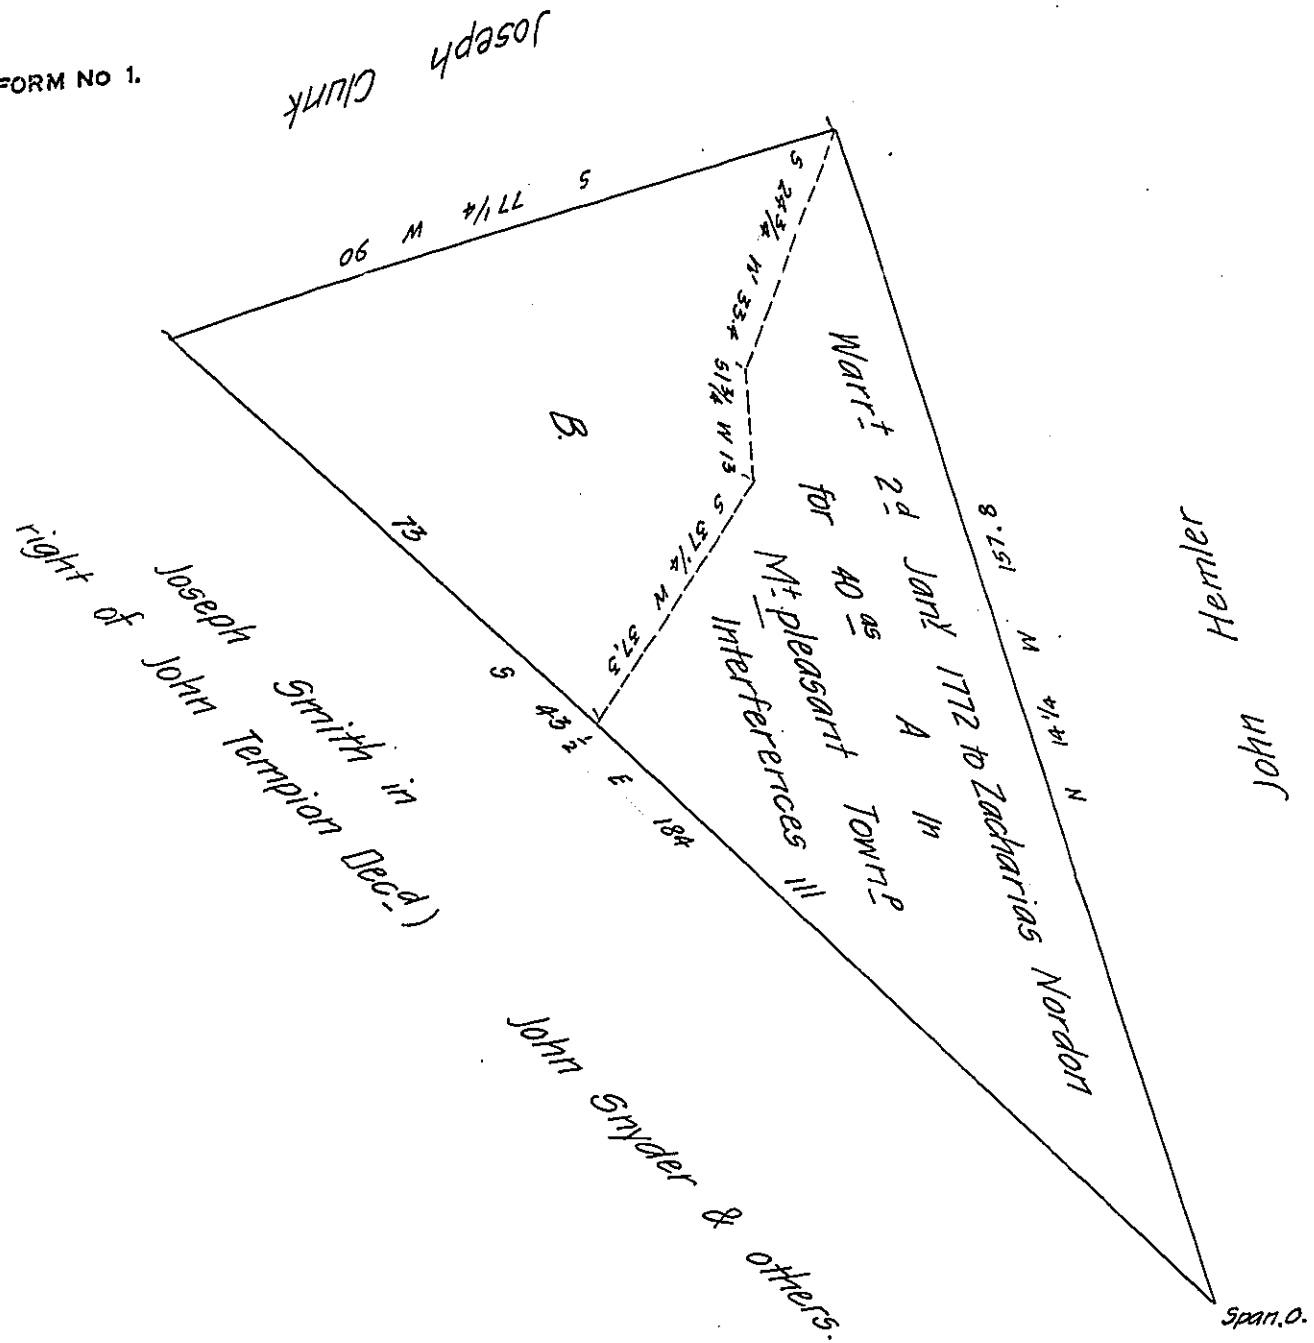 FORM NO 1.
Joseph Clunk
S 77 1/4 W 90
S 24 3/4 W 33.4
S 1 3/4 W 13
S 37 1/4 W 37.3
B.
Warrt 2d Jany 1772 to Zacharias Nordon
for 40 as A In
Mt pleasant Townp
Interferences III
N 14 1/4 W 157.8
John Hemler
73
S 43 1/2 E 184
Joseph Smith in
right of John Tempion Decd)
John Snyder & others.
Span.O.